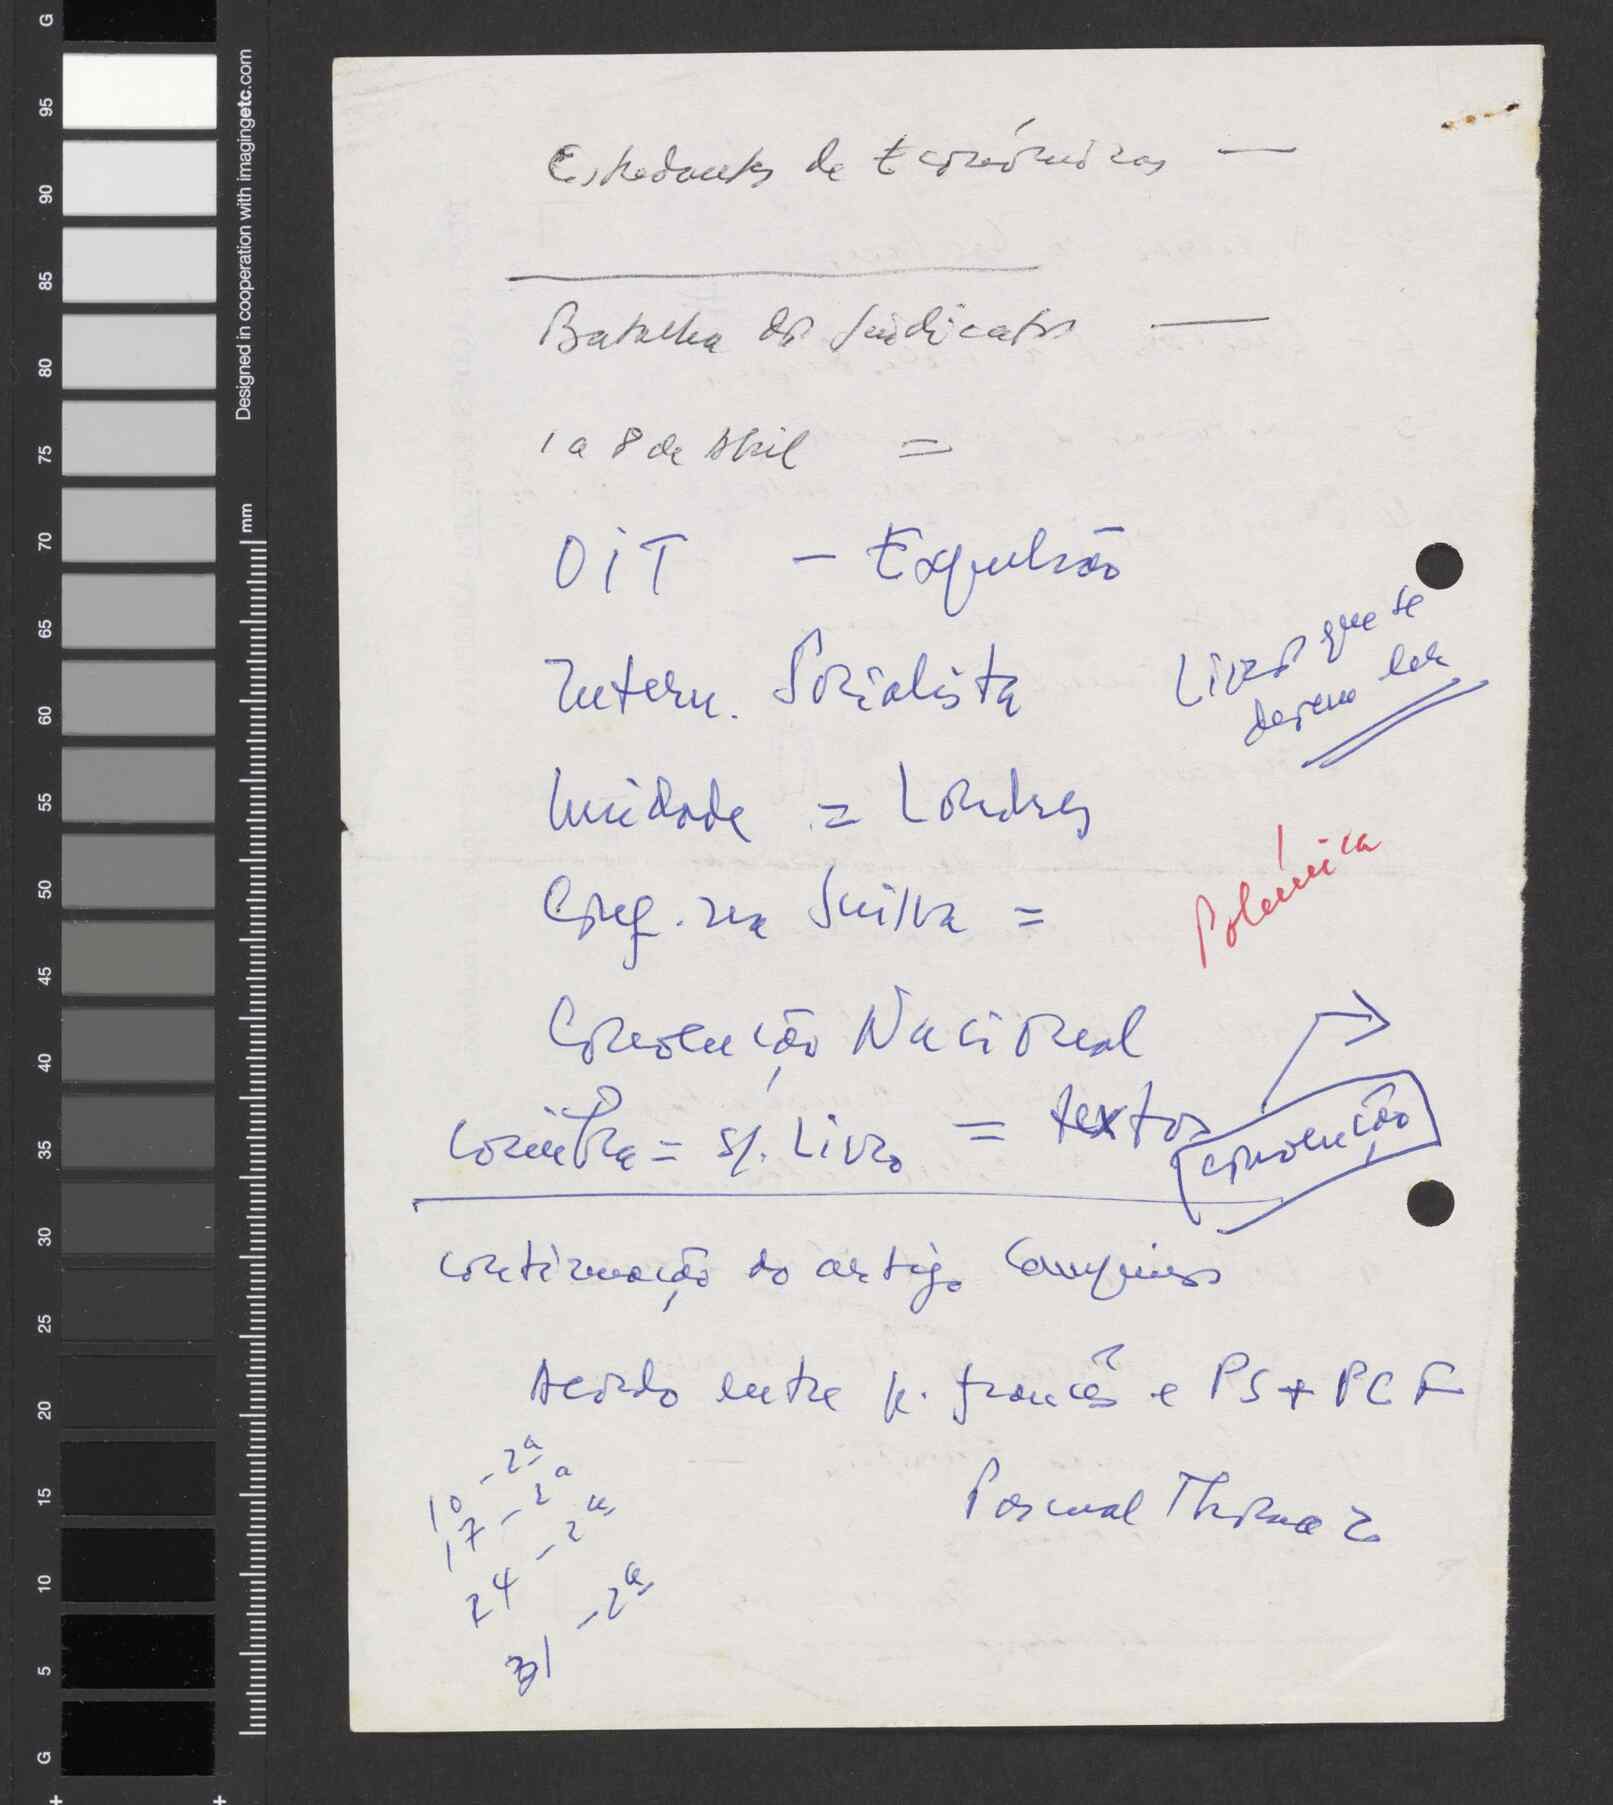 Estudantes de Económicas —
Batalha dos Sindicatos —
1 a 8 de Abril =
OIT - Expulsão
Intern. Socialista
Livros que se
devem ler
Unidade = Londres
Polémica
Cong. na Suissa =
Convenção Nacional
Coimbra = s/. Livro = textos
convenção
continuação do artigo Campinos
Acordo entre p. francês e PS + PCF
Pascual Thomaz
10 - 2ª
17 - 2ª
24 - 2ª
31 - 2ª
Designed in cooperation with imagingetc.com
mm
G
95
90
85
80
75
70
65
60
55
50
45
40
35
30
25
20
15
10
5
G